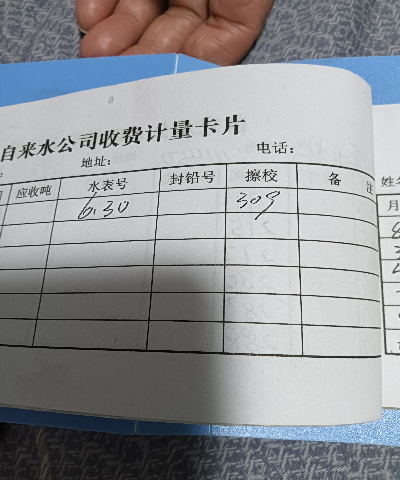 自来水公司收费计量卡片
地址： 电话：
应收吨 水表号 封铅号 擦校 备 注 姓名
6.30 309 月